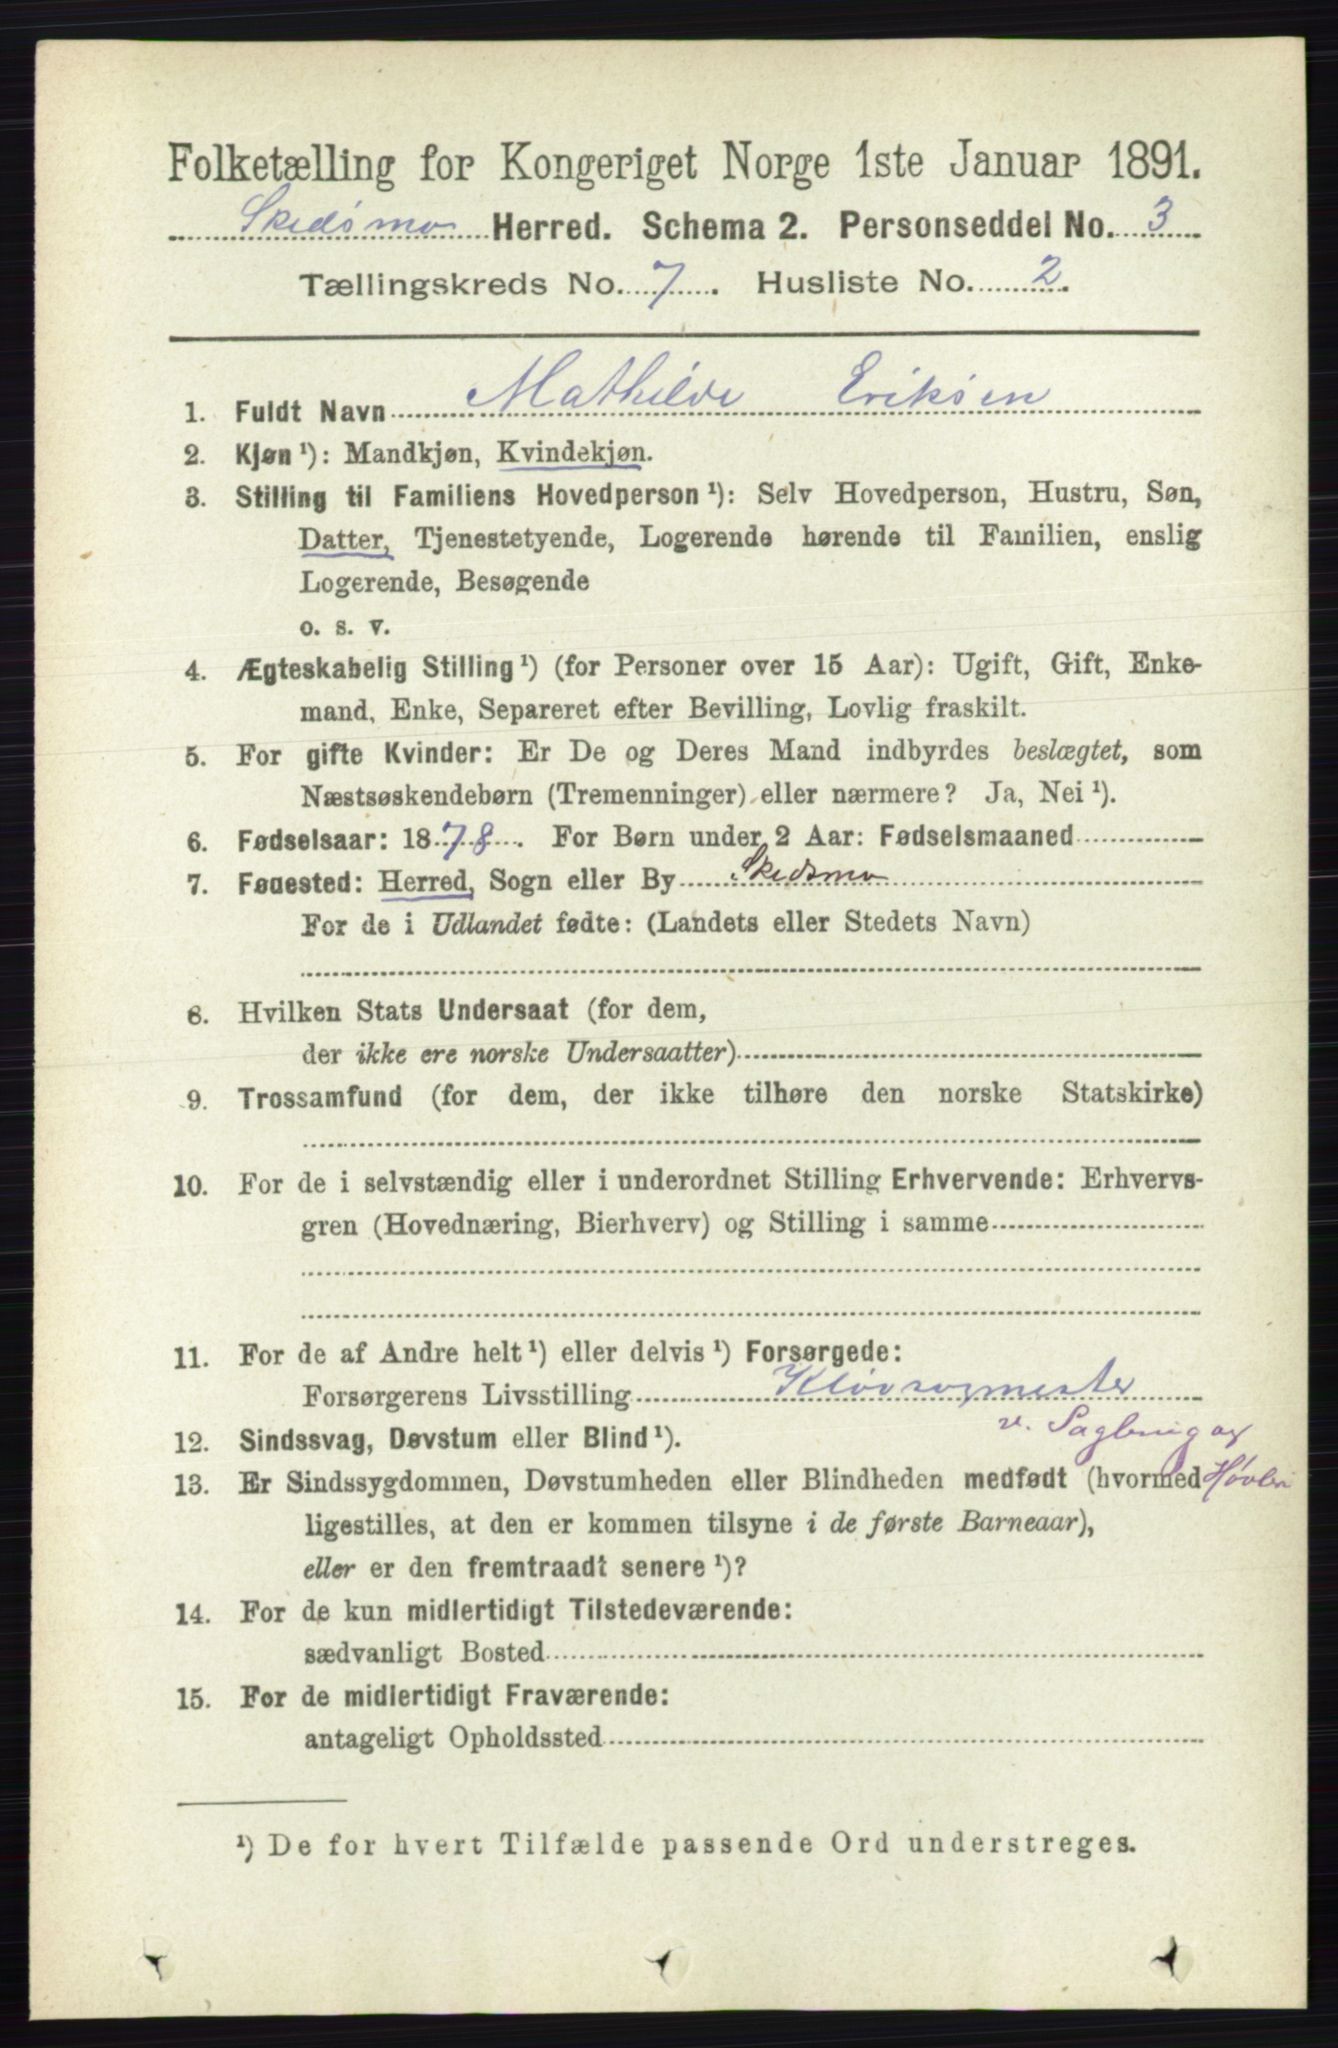 Folketælling for Kongeriget Norge 1ste Januar 1891.
Skedsmo Herred. Schema 2. Personseddel No. 3
Tællingskreds No. 7. Husliste No. 2.
1. Fuldt Navn Mathilde Eriksen
2. Kjøn¹): Mandkjøn, Kvindekjøn.
3. Stilling til Familiens Hovedperson¹): Selv Hovedperson, Hustru, Søn,
Datter, Tjenestetyende, Logerende hørende til Familien, enslig
Logerende, Besøgende
o. s. v.
4. Ægteskabelig Stilling¹) (for Personer over 15 Aar): Ugift, Gift, Enke-
mand, Enke, Separeret efter Bevilling, Lovlig fraskilt.
5. For gifte Kvinder: Er De og Deres Mand indbyrdes beslægtet, som
Næstsøskendebørn (Tremenninger) eller nærmere? Ja, Nei¹).
6. Fødselsaar: 1878. For Børn under 2 Aar: Fødselsmaaned
7. Fødested: Herred, Sogn eller By Skedsmo
For de i Udlandet fødte: (Landets eller Stedets Navn)
8. Hvilken Stats Undersaat (for dem,
der ikke ere norske Undersaatter)
9. Trossamfund (for dem, der ikke tilhøre den norske Statskirke)
10. For de i selvstændig eller i underordnet Stilling Erhvervende: Erhvervs-
gren (Hovednæring, Bierhverv) og Stilling i samme
11. For de af Andre helt¹) eller delvis¹) Forsørgede:
Forsørgerens Livsstilling Kløvsagmester
v. Sagbrug og
12. Sindssvag, Døvstum eller Blind¹).
13. Er Sindssygdommen, Døvstumheden eller Blindheden medfødt (hvormed Høvleri
ligestilles, at den er kommen tilsyne i de første Barneaar),
eller er den fremtraadt senere¹)?
14. For de kun midlertidigt Tilstedeværende:
sædvanligt Bosted
15. For de midlertidigt Fraværende:
antageligt Opholdssted
¹) De for hvert Tilfælde passende Ord understreges.